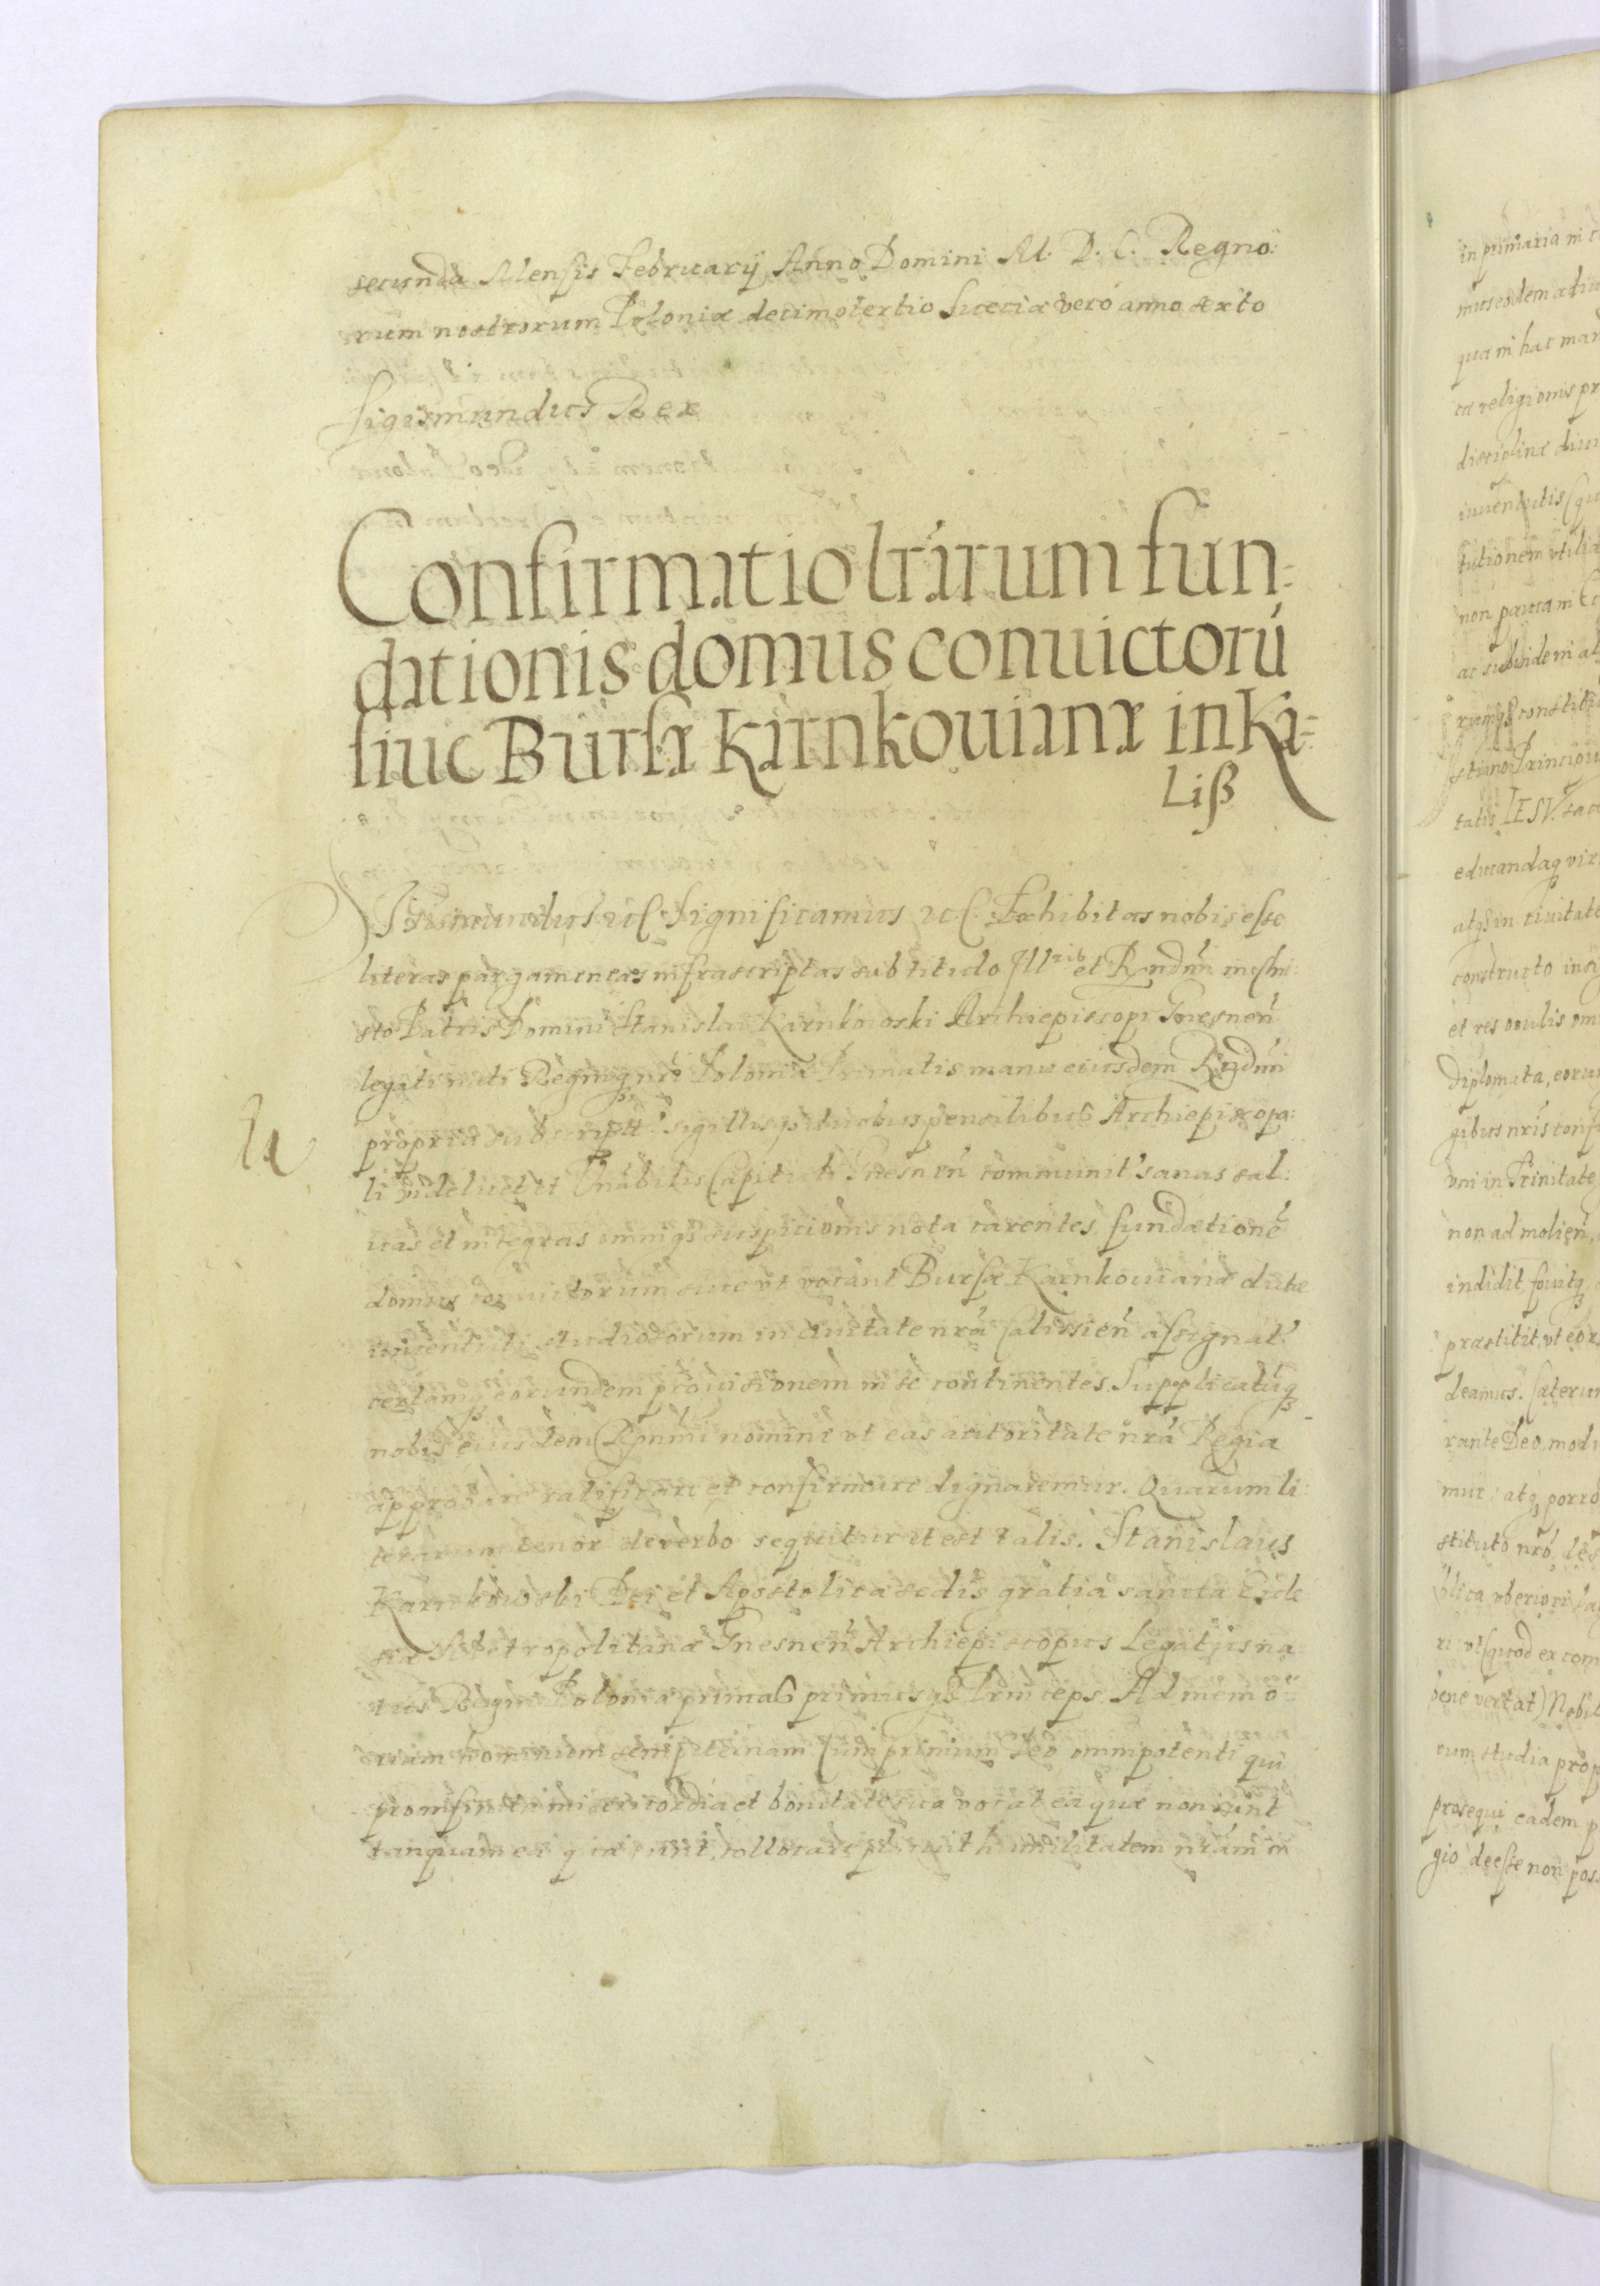 secunda Mensis Februarij Anno Domini M. D. C. Regno:
rum nostrorum Poloniæ decimotertio Sueciæ verò anno sexto
Sigismundus Rex
Confirmatio lrãrum fun=
dationis domus conuictorũ
siue Bursæ Karnkouianæ in Ka=
Liß
Sigismundus etc. Significamus etc. Exhibitas nobis esse
literas pargameneas infrascriptas sub titulo Ill et Rndmi in Chri:
sto Patris Domini Stanislai Karnkowski Archiepiscopi Gnesneñ
legati nati Regniq nri Poloniæ Primatis manu eiusdem Rndmi
propria subscript. sigillisq duobus pensilibus Archiepiscopa:
li videlicet et Vnãbilis Capituli Gnesneñ communit' sanas sal:
uas et integras omniq suspicionis nota carentes, fundationē
domus conuictorum siue vt vocant Bursæ Karnkouianæ
iuuentuti studiosorum in Ciuitate nrã Calissieñ assignat'
certamq eorundem prouisionem in se continentes. Supplicatūq
nobis eiusdem Rndmi nomine vt eas autoritate nrã Regia
approbare ratificare et confirmare dignaremur. Quarum li:
terarum tenor de verbo sequitur et est talis. Stanislaus
Karnkowski Dei et Apostolica sedis gratia sancta Eccle
siæ Metropolitanæ Gnesneñ Archiepiscopus Legatus na
tus Regni Poloniæ primas primusq Princeps. Ad memo=
riam hominum sempiternam. Cum primum Deo omnipotenti qui
pro infinita misericordia et bonitate sua vocat ea quæ non sunt
tanquam ea quæ sunt, collocare placuit humilitatem nrãm in
in primaria
mus eodem
qua in hac
ca religionis
disciplinæ
iuuentutis
tutionem
non pauca in
ac subinde in
rumq
Princip
tatis IESV.
educandaq
atq in ciuitate
constructo
et res oculis
diplomata,
gibus nris
vni in Trinitate
non ad molien
indidit, fouitq
præstitit, vt
deamus. Cæterum
rante Deo,
mur: atq porro
stituto nro,
blica vberiori
ri vt (quod ex
bene vertat)
cum studia
prosequi eadem
gio deesse non